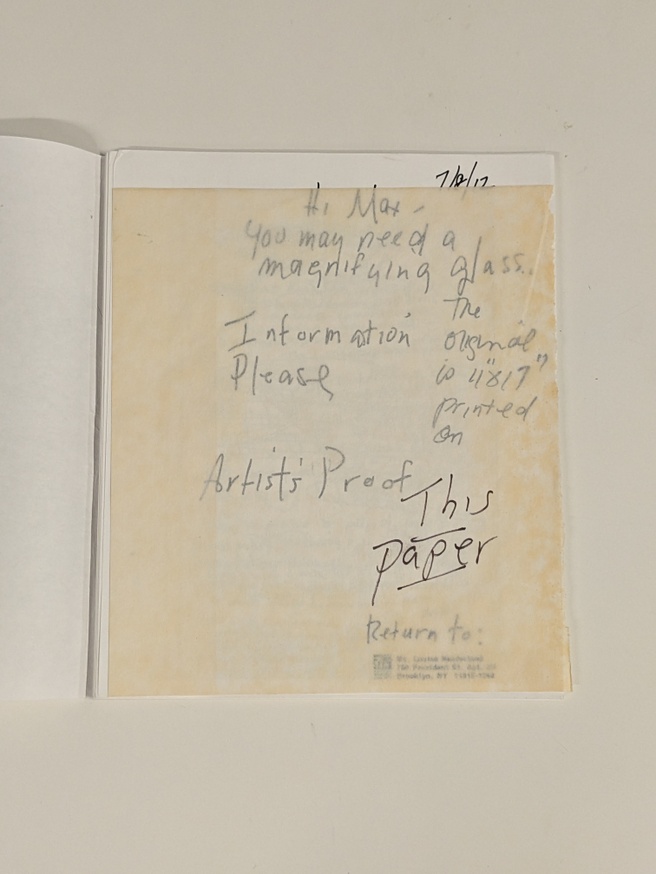 7/8/12
Hi Max -
You may need a
magnifying glass.
Information
Please
The
original
is 11"x17"
printed
on
Artist's Proof
This
paper
Return to:
Brooklyn, NY